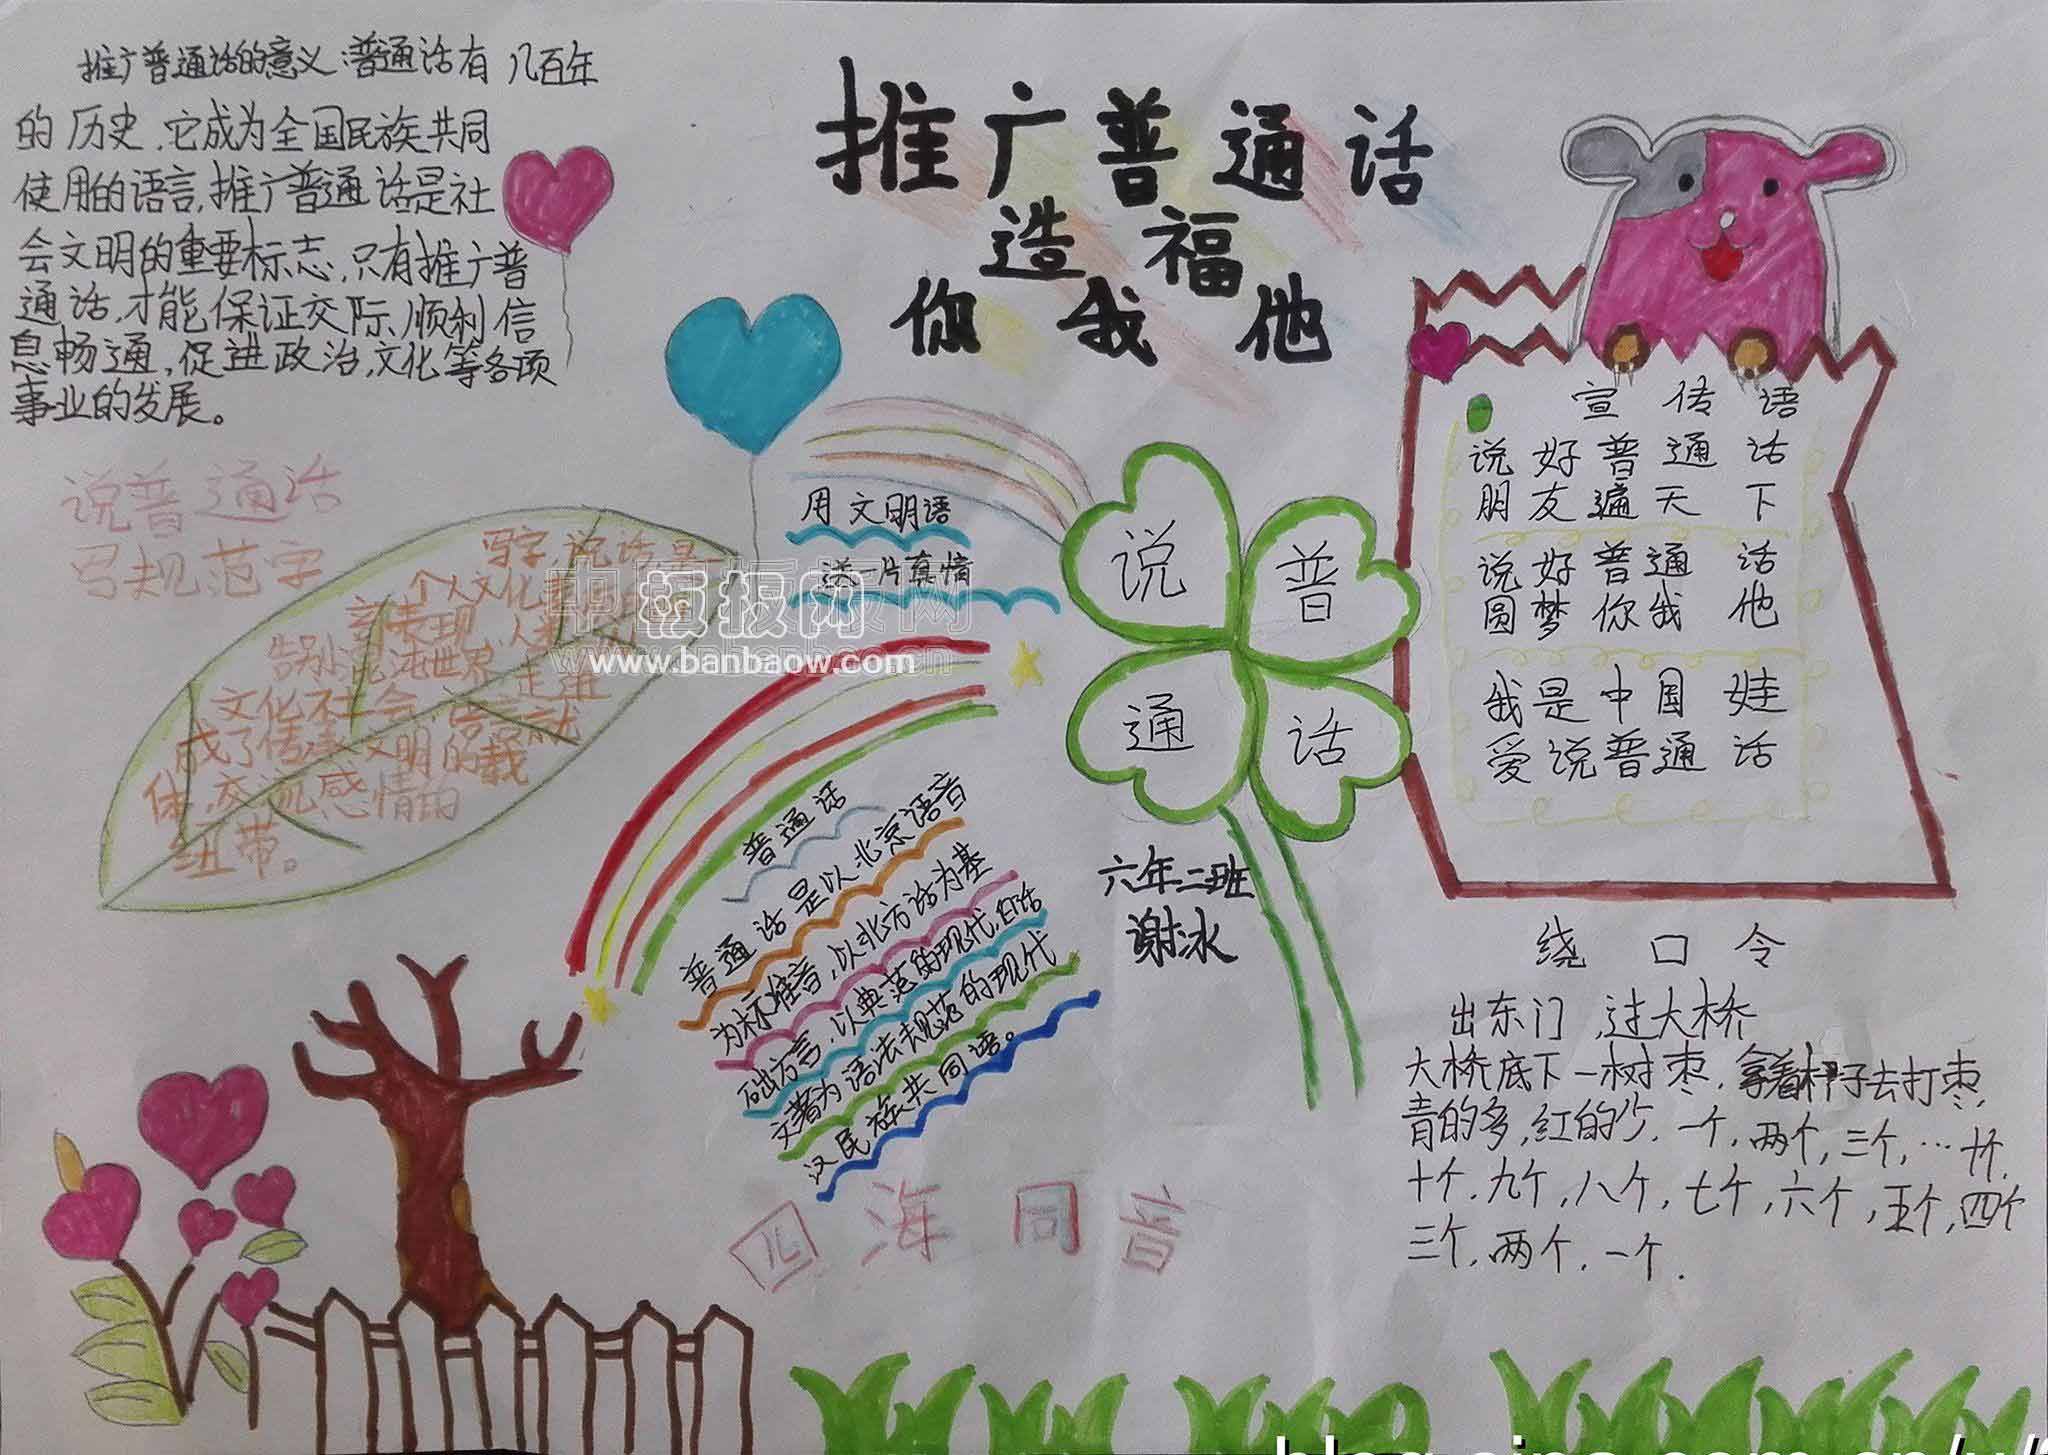 推广普通话的意义:普通话有几百年
的历史,它成为全国民族共同
使用的语言,推广普通话是社
会文明的重要标志,只有推广普
通话,才能保证交际顺利信
息畅通,促进政治,文化等各项
事业的发展。
推广普通话
造福
你我他
说普通话
写规范字
写字,说话是
个人文化
告别混沌世界,走进
文化社会,语言就
成了传承文明的载
体,交流感情的
纽带。
用文明语
送一片真情
板报网
www.banbaow.com
说普
通话
宣传语
说好普通话
朋友遍天下
说好普通话
圆梦你我他
我是中国娃
爱说普通话
普通话
普通话是以北京语音
为标准音,以北方话为基
础方言,以典范的现代白话
文著为语法规范的现代
汉民族共同语。
六年二班
谢冰
四海同音
绕口令
出东门,过大桥
大桥底下一树枣,拿着杆子去打枣,
青的多,红的少,一个,两个,三个,…十个,
十个,九个,八个,七个,六个,五个,四个
三个,两个,一个.